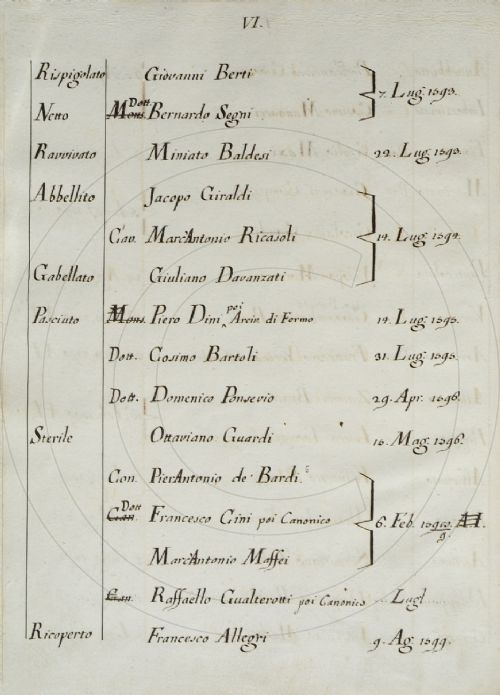 VI.
Rispigolato Giovanni Berti
7. Lug. 1593.
Netto Dott. Mons. Bernardo Segni
Ravvivato Miniato Baldesi 22. Lug. 1593.
Abbellito Jacopo Giraldi
Cav. Marc'Antonio Ricasoli 14. Lug. 1594.
Gabellato Giuliano Davanzati
Pasciuto Mons. Piero Dini poi Arciv. di Fermo 14. Lug. 1595.
Dott. Cosimo Bartoli 31. Lug. 1595.
Dott. Domenico Ponsevio 29. Apr. 1596.
Sterile Ottaviano Guardi 15. Mag. 1596.
Con. PierAntonio de' Bardi
Dott. Can. Francesco Gini poi Canonico 6. Feb.
Marc'Antonio Maffei
Can. Raffaello Gualterotti poi Canonico ... Lugl.......
Ricoperto Francesco Allegri 9. Ag. 1599.